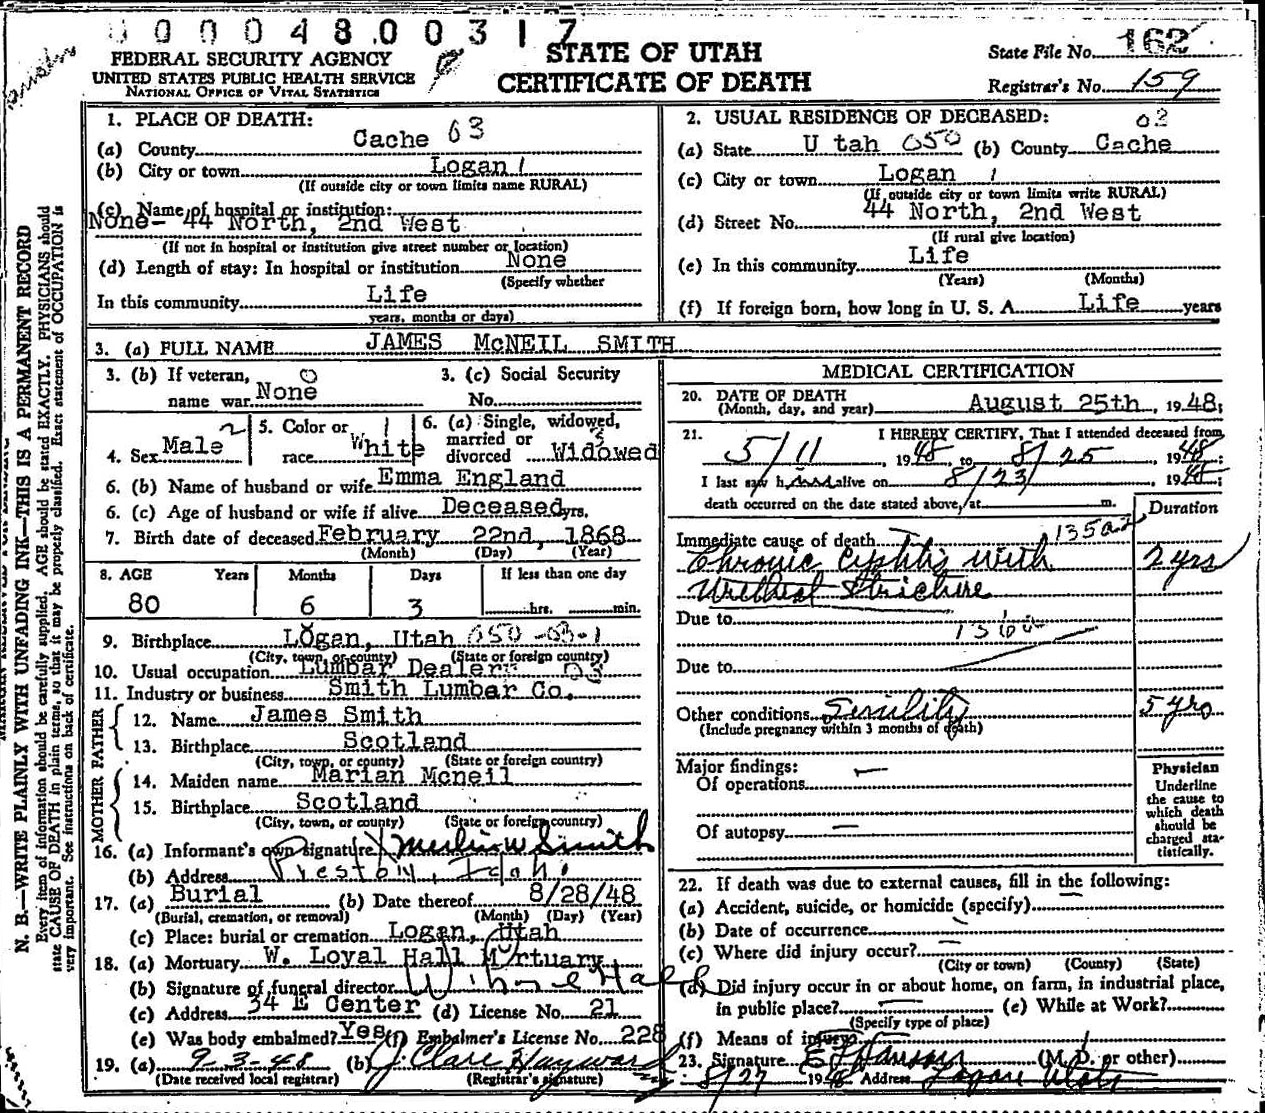 000048.00317
FEDERAL SECURITY AGENCY
UNITED STATES PUBLIC HEALTH SERVICE
NATIONAL OFFICE OF VITAL STATISTICS
STATE OF UTAH
CERTIFICATE OF DEATH
State File No. 162
Registrar's No. 159
N. B.—WRITE PLAINLY WITH UNFADING INK—THIS IS A PERMANENT RECORD
Every item of information should be carefully supplied. AGE should be stated EXACTLY. PHYSICIANS should
state CAUSE OF DEATH in plain terms, so that it may be properly classified. Exact statement of OCCUPATION is
very important. See instructions on back of certificate.
1. PLACE OF DEATH:
(a) County Cache 63
(b) City or town Logan 1
(If outside city or town limits name RURAL)
(c) Name of hospital or institution:
None- 44 North, 2nd West
(If not in hospital or institution give street number or location)
(d) Length of stay: In hospital or institution None
(Specify whether
In this community Life
years, months or days)
2. USUAL RESIDENCE OF DECEASED: 03
(a) State U tah 050 (b) County Cache
(c) City or town Logan 1
(If outside city or town limits write RURAL)
(d) Street No. 44 North, 2nd West
(If rural give location)
(e) In this community Life
(Years) (Months)
(f) If foreign born, how long in U. S. A. Life years
3. (a) FULL NAME JAMES McNEIL SMITH
3. (b) If veteran, 0
name war None
3. (c) Social Security
No.
4. Sex Male 2
5. Color or 1
race White
6. (a) Single, widowed,
married or 3
divorced Widowed
6. (b) Name of husband or wife Emma England
6. (c) Age of husband or wife if alive Deceased yrs.
7. Birth date of deceased February 22nd, 1868
(Month) (Day) (Year)
8. AGE Years Months Days If less than one day
80 6 3 hrs. min.
9. Birthplace Logan, Utah 050-03-1
(City, town, or county) (State or foreign country)
10. Usual occupation Lumbar Dealer 03
11. Industry or business Smith Lumbar Co.
FATHER
12. Name James Smith
13. Birthplace Scotland
(City, town, or county) (State or foreign country)
MOTHER
14. Maiden name Marian Mcneil
15. Birthplace Scotland
(City, town, or county) (State or foreign country)
16. (a) Informant's own signature X Merlin W Smith
(b) Address Preston, Idaho.
17. (a) Burial (b) Date thereof 8/28/48
(Burial, cremation, or removal) (Month) (Day) (Year)
(c) Place: burial or cremation Logan, Utah
18. (a) Mortuary W. Loyal Hall Mortuary
(b) Signature of funeral director Hall
(c) Address 34 E Center (d) License No. 21
(e) Was body embalmed? Yes (f) Embalmer's License No. 228
19. (a) 9-3-48 (b) J. Clare Hayward
(Date received local registrar) (Registrar's signature)
MEDICAL CERTIFICATION
20. DATE OF DEATH
(Month, day, and year) August 25th, 1948;
21. I HEREBY CERTIFY, That I attended deceased from
5/11, 1948 to 8/25 1948;
I last saw him alive on 8/23, 1948;
death occurred on the date stated above, at m.
Duration
Immediate cause of death 135a2
Chronic Cystitis with 2 yrs
Urethral Stricture
Due to
Due to
Other conditions Senility 5 yrs
(Include pregnancy within 3 months of death)
Major findings: —
Of operations
Of autopsy —
Physician
Underline
the cause to
which death
should be
charged sta-
tistically.
22. If death was due to external causes, fill in the following:
(a) Accident, suicide, or homicide (specify) —
(b) Date of occurrence
(c) Where did injury occur? —
(City or town) (County) (State)
(d) Did injury occur in or about home, on farm, in industrial place,
in public place? — (e) While at Work?
(Specify type of place)
(f) Means of injury
23. Signature (M. D. or other)
8/27 1948 Address Logan Utah